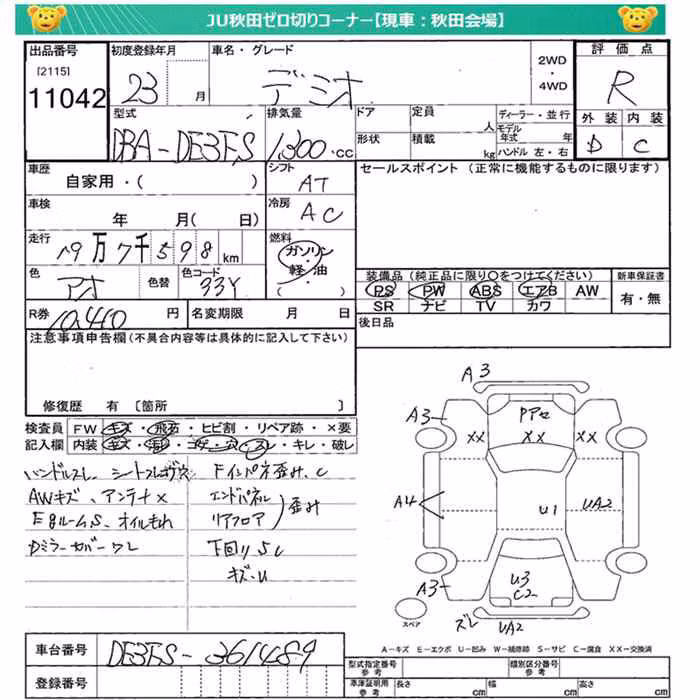 JU秋田ゼロ切りコーナー【現車：秋田会場】
出品番号 初度登録年月 車名・グレード 2WD・4WD 評価点
[2115]
11042 23 月 デミオ R
型式 排気量 ドア 定員 人 ディーラー・並行 外装 内装
DBA-DE3FS 1,300 cc 形状 積載 kg モデル年式 年 ハンドル 左・右 D C
車歴 シフト セールスポイント (正常に機能するものに限ります)
自家用・( ) AT
車検 冷房
年 月( 日) AC
走行 燃料
19万7千598km ガソリン・軽油
色 色替 色コード 装備品 (純正品に限り○をつけてください) 新車保証書
アオ 33Y PS PW ABS エアB AW 有・無
SR ナビ TV カワ
R券 10,410 円 名変期限 月 日 後日品
注意事項申告欄(不具合内容等は具体的に記入して下さい)
修復歴 有 〔箇所 〕
検査員 FW キズ・飛石・ヒビ割・リペア跡・×要
記入欄 内装
キレ・破レ
AWキズ、アンテナ×
オイルもれ
Fインパネ歪み、C
エンドパネル
リアフロア 歪み
下回りSC
キズ・U
A3
A3 Pアセ
XX XX XX
A4 U1 UA2
A3 U3
C2
ズレ UA2
スペア
A-キズ E-エクボ U-凹み W-補修跡 S-サビ C-腐食 XX-交換済
車台番号 DE3FS-361489
登録番号
型式指定番号 参考 類別区分番号 参考
車庫証明用 参考 長さ cm 幅 cm 高さ cm